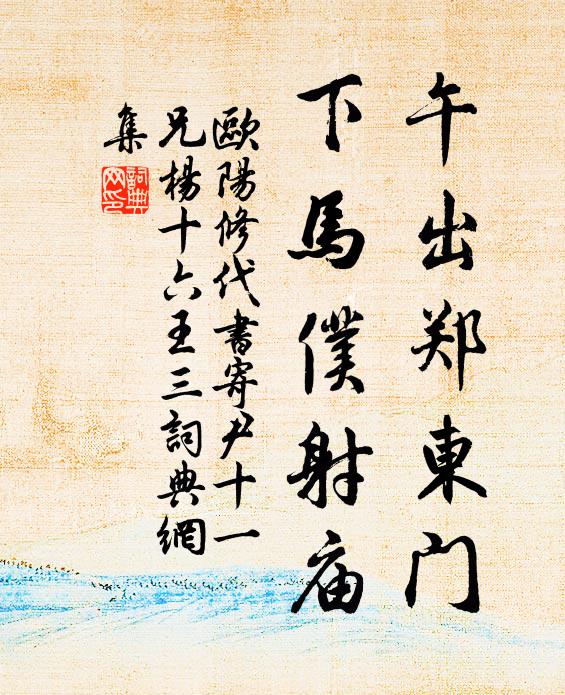 午出郑東门
下馬僕射庙
歐陽修代書寄尹十一
兄楊十六王三詞典網
集
詞典
网印